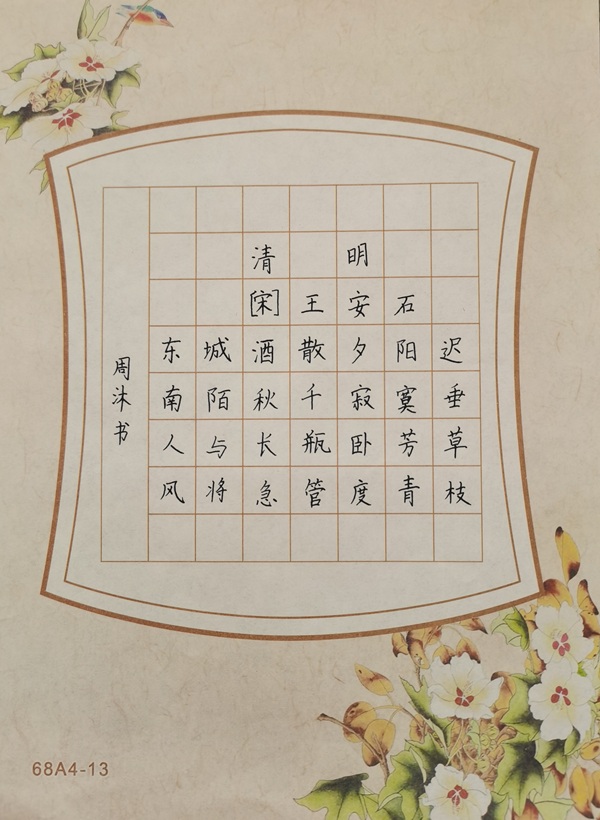 清明
[宋]王安石
东城酒散夕阳迟
南陌秋千寂寞垂
人与长瓶卧芳草
风将急管度青枝
周沐书
68A4-13